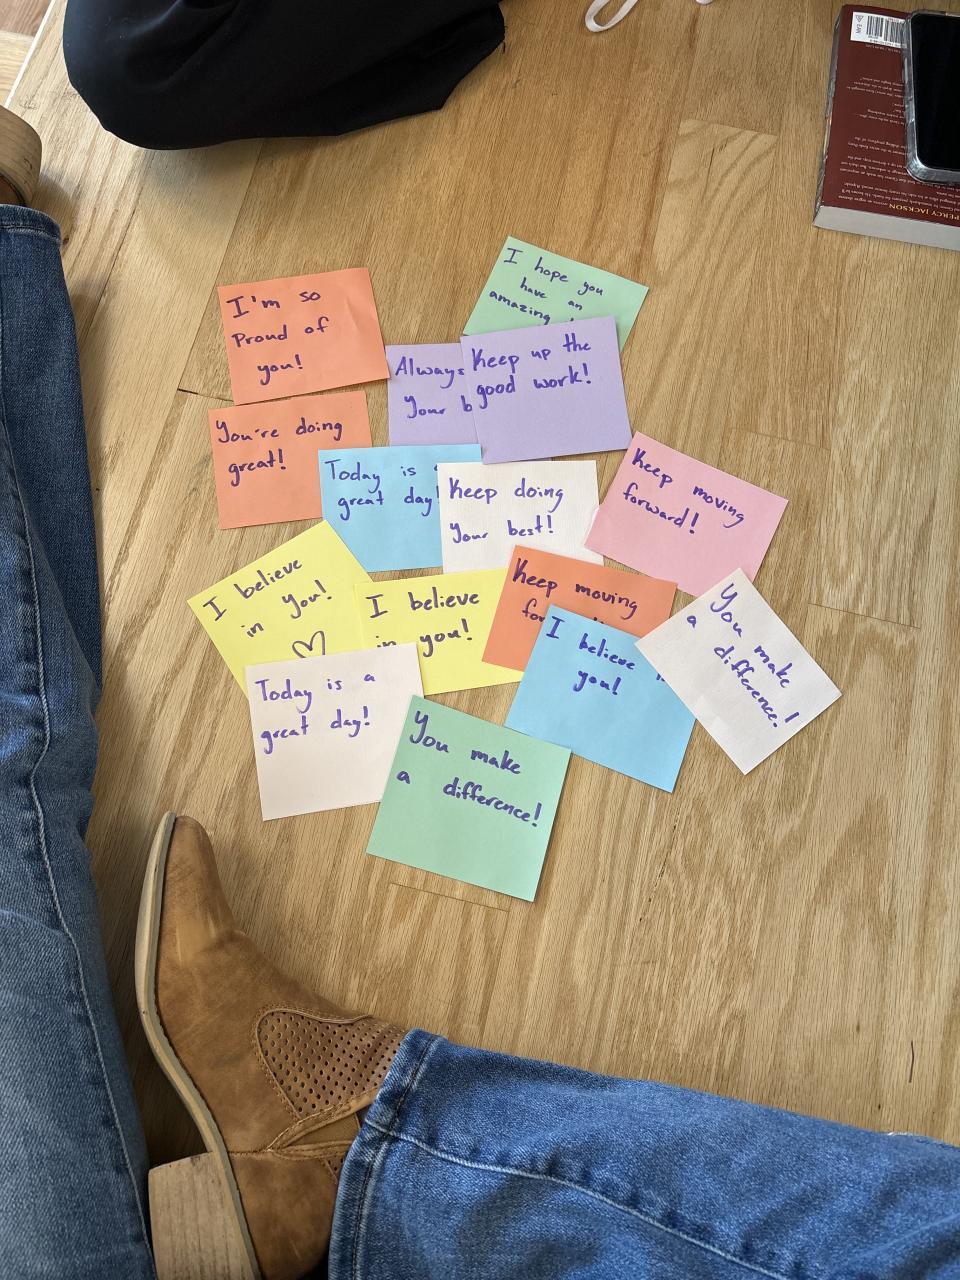 I'm so
Proud of
you!
I hope you
have an
amazing
Always
Your
Keep up the
good work!
You're doing
great!
Today is
great day!
Keep doing
Your best!
Keep moving
forward!
I believe
in you!
I believe
in you!
Keep moving
I believe
you!
You make
a difference!
Today is a
great day!
You make
a difference!
PERCY JACKSON